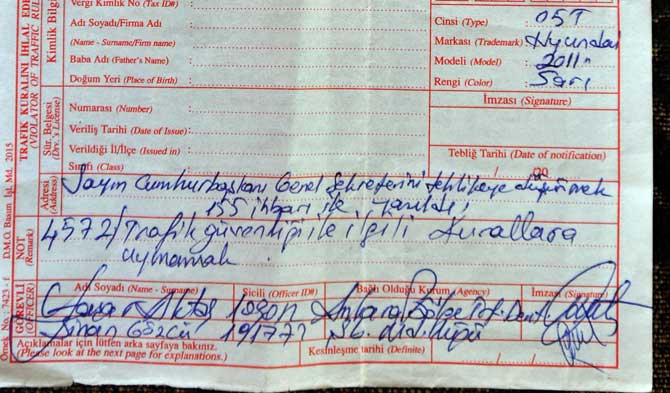 Vergi Kimlik No (Tax ID#)
Adı Soyadı/Firma Adı
(Name - Surname/Firm name)
Baba Adı (Father's Name)
Doğum Yeri (Place of Birth)
Cinsi (Type) : OST
Markası (Trademark) Hyundai
Modeli (Model) 2011
Rengi (Color) : Sarı
İmzası (Signature)
TRAFİK KURALINI İHLAL EDE
(VIOLATOR OF TRAFFIC RUL
Kimlik Bilgi
Sür. Belgesi
(Drv.'s License)
Numarası (Number)
Veriliş Tarihi (Date of Issue):
Verildiği İl/İlçe (Issued in)
Sınıfı (Class)
Tebliğ Tarihi (Date of notification)
Adresi
(Address)
Sayın Cumhurbaşkanı Genel Sekreterini tehlikeye düşürmek
155 ihbarı ile yazıldı
NOT
(Remark)
4572/Trafik güvenliği ile ilgili kurallara
uymamak.
GÖREVLİ
(OFFICER)
Adı Soyadı (Name - Surname)
Sicili (Officer ID#)
Bağlı Olduğu Kurum (Agency)
İmzası (Signature)
Aktaş Ankara Bölge Trf. Den
Sinan 191771 Şb. Müdürlüğü
Açıklamalar için lütfen arka sayfaya bakınız.
(Please look at the next page for explanations.)
Kesinleşme tarihi (Definite)
Örnek No.: 7423 - f D.M.O. Basım İşl. Md. 2015